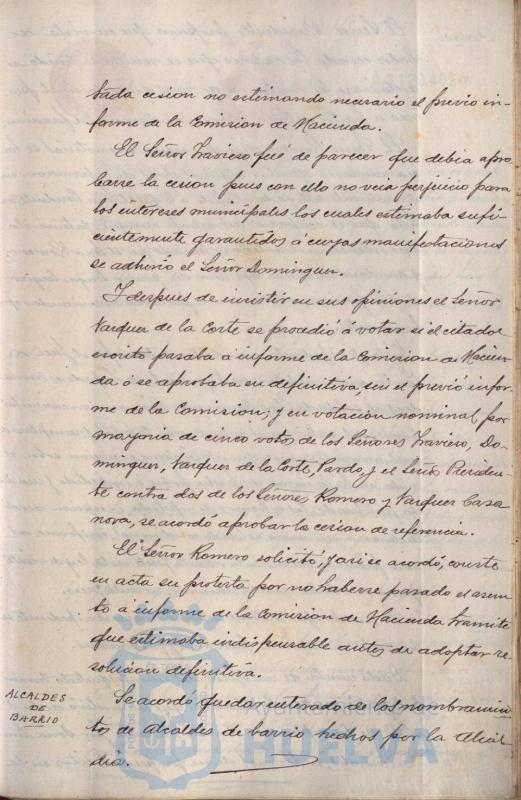 tada cesion no estimando necesario el previo in-
forme de la Comision de Hacienda.
El Señor Travieso fué de parecer que debia apro-
barse la cesion pues con ello no veia perjuicio para
los intereses municipales los cuales estimaba sufi-
cientemente garantidos á cuyas manifestaciones
se adhirió el Señor Dominguez.
Y despues de insistir en sus opiniones el Señor
Vazquez de la Corte se procedió á votar si el citado
escrito pasaba á informe de la Comision de Hacien-
da ó se aprobaba en definitiva, sin el previo infor-
me de la Comision; y en votación nominal, por
mayoria de cinco votos de los Señores Travieso, Do-
minguez, Vazquez de la Corte, Pardo, y el Señor Presiden-
te contra dos de los Señores Romero y Vazquez Casa
nova, se acordó aprobar la cesion de referencia.
El Señor Romero solicitó, y asi se acordó, conste
en acta su protesta por no haberse pasado el asun-
to á informe de la Comision de Hacienda tramite
que estimaba indispensable antes de adoptar re-
solucion definitiva.
ALCALDES
DE
BARRIO
Se acordó quedar enterado de los nombramien-
tos de Alcaldes de barrio hechos por la Alcal
dia.
Ayuntamiento de
HUELVA